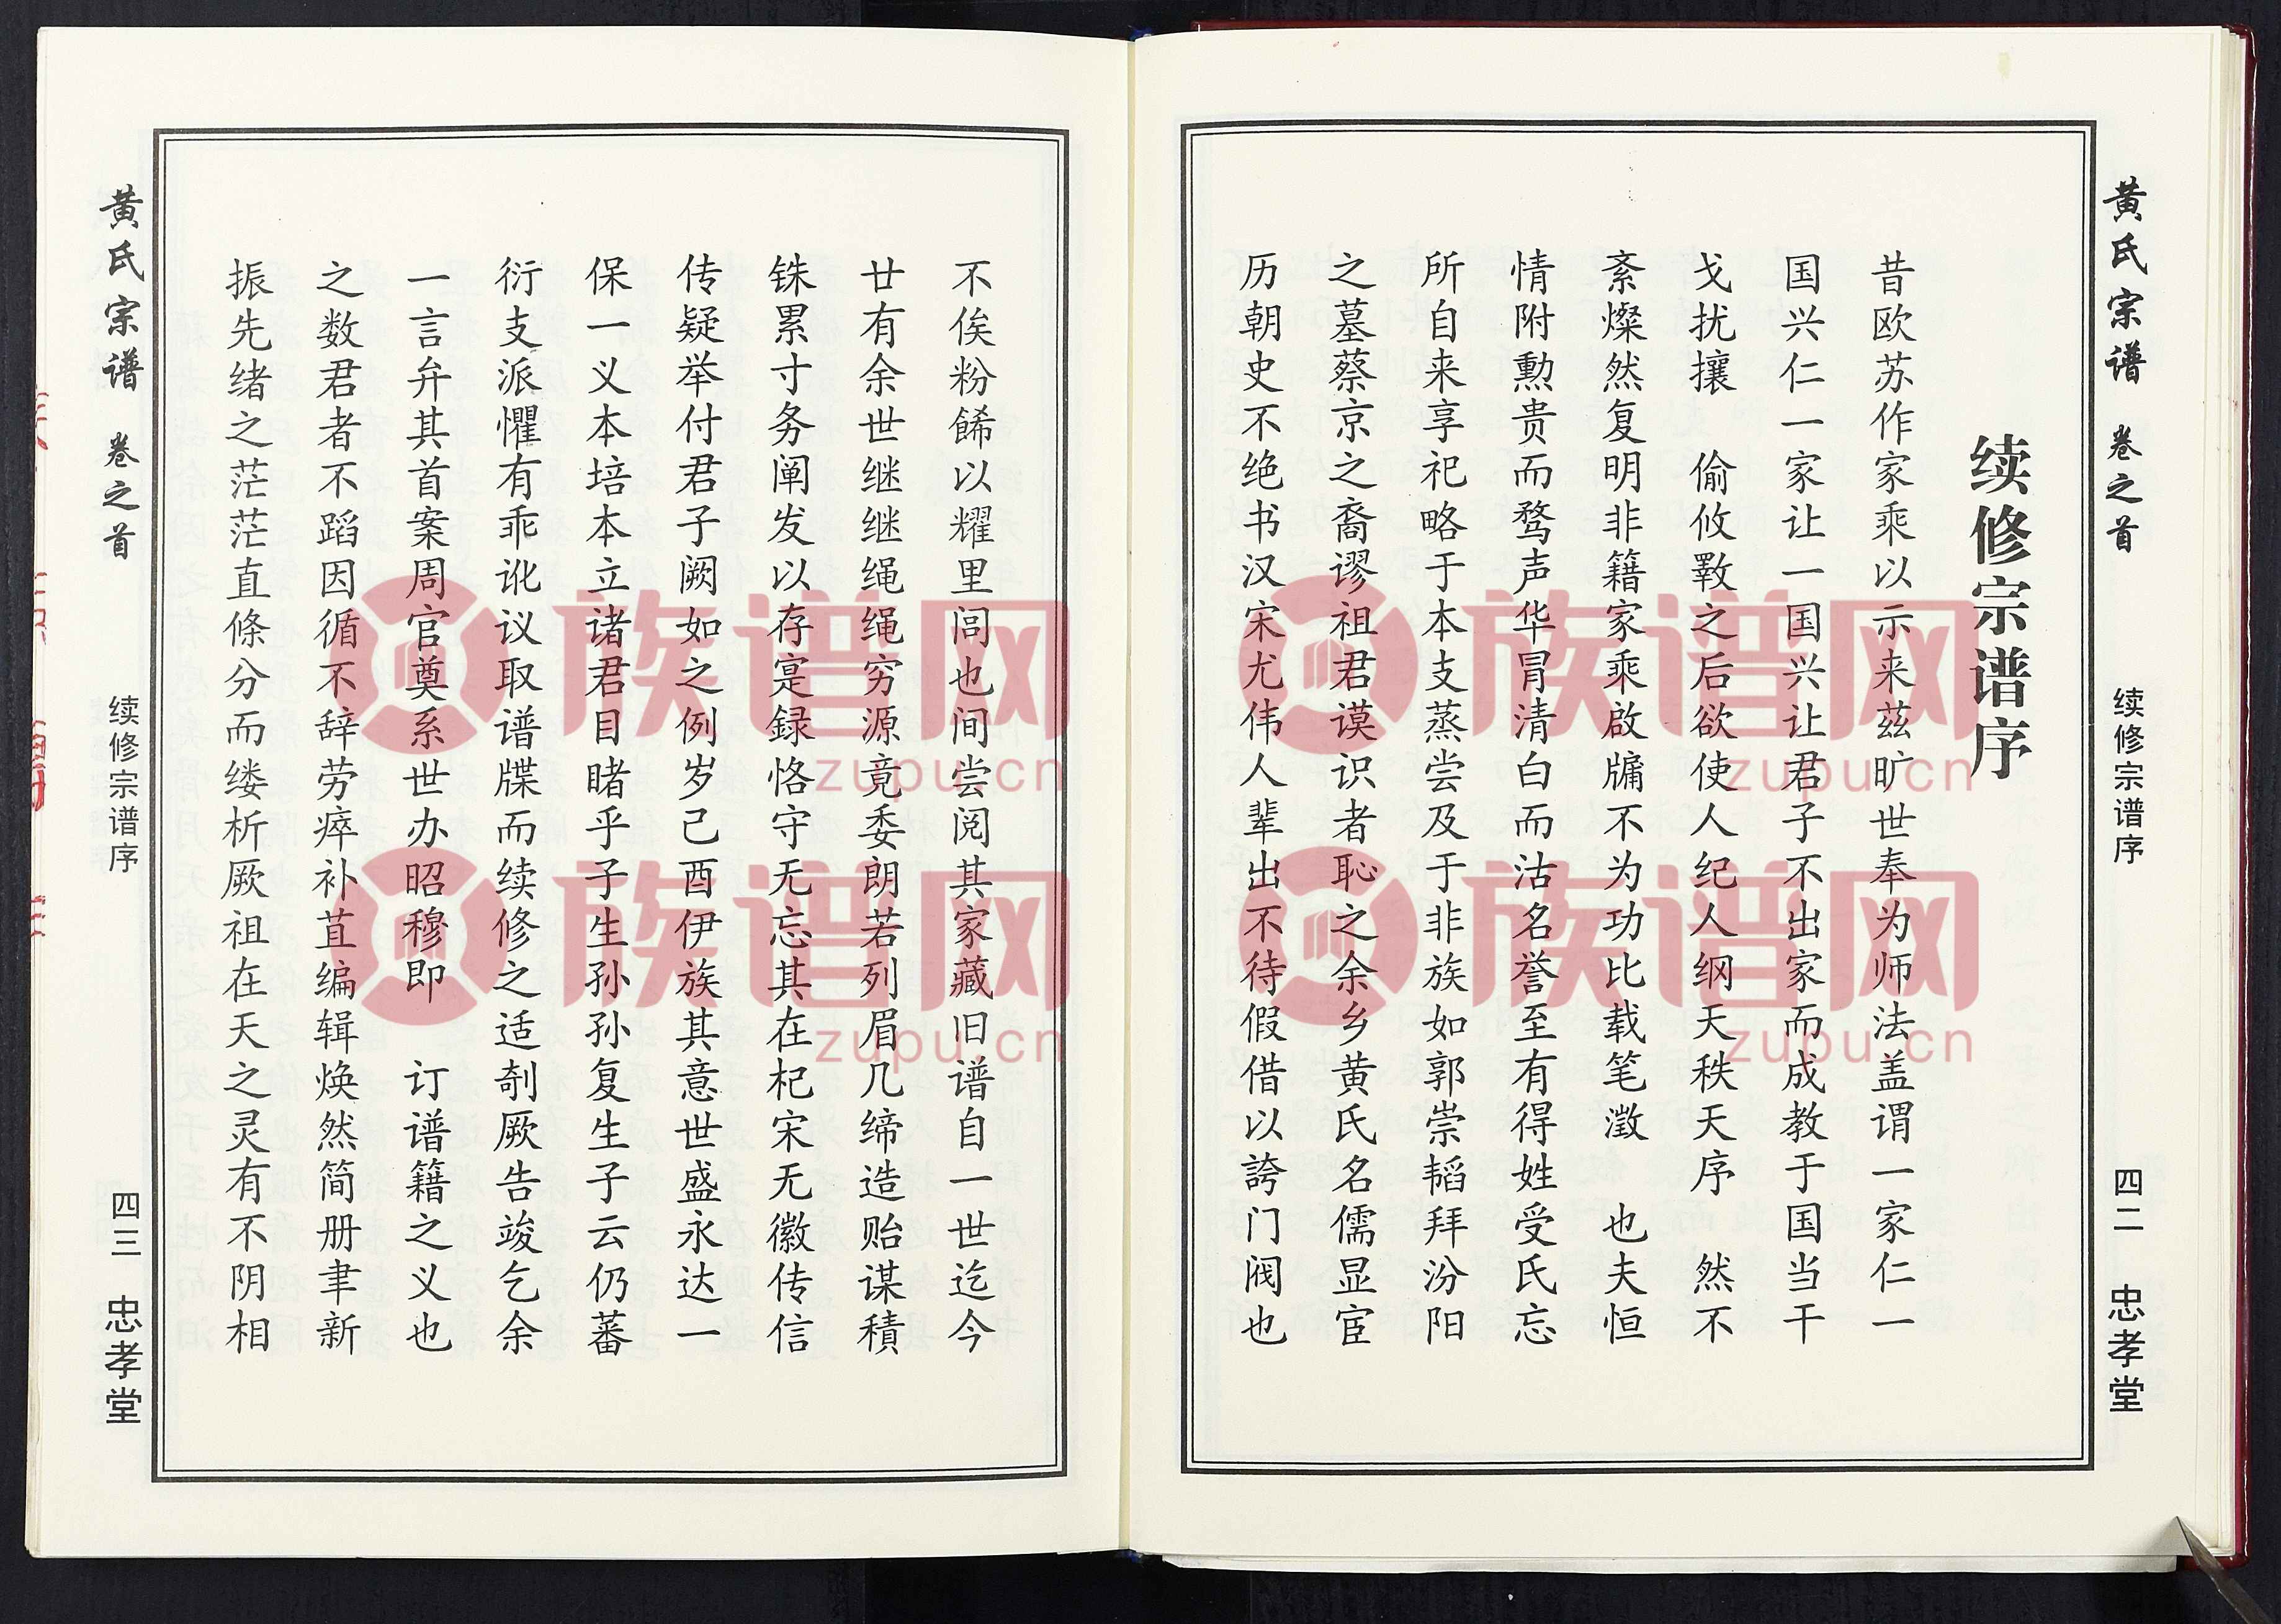 黄氏宗谱 卷之首 续修宗谱序 四二 忠孝堂
续修宗谱序
昔欧苏作家乘以示来兹旷世奉为师法盖谓一家仁一
国兴仁一家让一国兴让君子不出家而成教于国当干
戈扰攘 偷攸斁之后欲使人纪人纲天秩天序 然不
紊燦然复明非籍家乘啟牖不为功比载笔澂 也夫恒
情附勳贵而骛声华冒清白而沽名誉至有得姓受氏忘
所自来享祀略于本支蒸尝及于非族如郭崇韬拜汾阳
之墓蔡京之裔谬祖君谟识者恥之余乡黄氏名儒显宦
历朝史不绝书汉宋尤伟人辈出不待假借以誇门阀也
不俟粉餙以耀里闾也间尝阅其家藏旧谱自一世迄今
廿有余世继继绳绳穷源竟委朗若列眉几缔造贻谋積
铢累寸务阐发以存寔録恪守无忘其在杞宋无徽传信
传疑举付君子阙如之例岁己酉伊族其意世盛永达一
保一义本培本立诸君目睹乎子生孙孙复生子云仍蕃
衍支派懼有乖讹议取谱牒而续修之适剞厥告竣乞余
一言弁其首案周官奠系世办昭穆即 订谱籍之义也
之数君者不蹈因循不辞劳瘁补苴编辑焕然简册聿新
振先绪之茫茫直條分而缕析厥祖在天之灵有不阴相
黄氏宗谱 卷之首 续修宗谱序 四三 忠孝堂
族谱网
zupu.cn
族谱网
zupu.cn
族谱网
zupu.cn
族谱网
zupu.cn